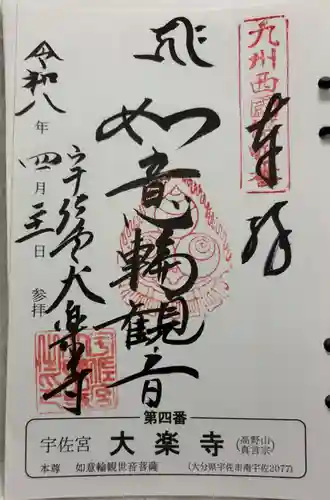 九州西国
奉拝
如意輪観音
宇佐宮大楽寺
令和八年四月 日 参拝
第四番
宇佐宮 大楽寺 (高野山真言宗)
本尊 如意輪観世音菩薩 (大分県宇佐市南宇佐2077)